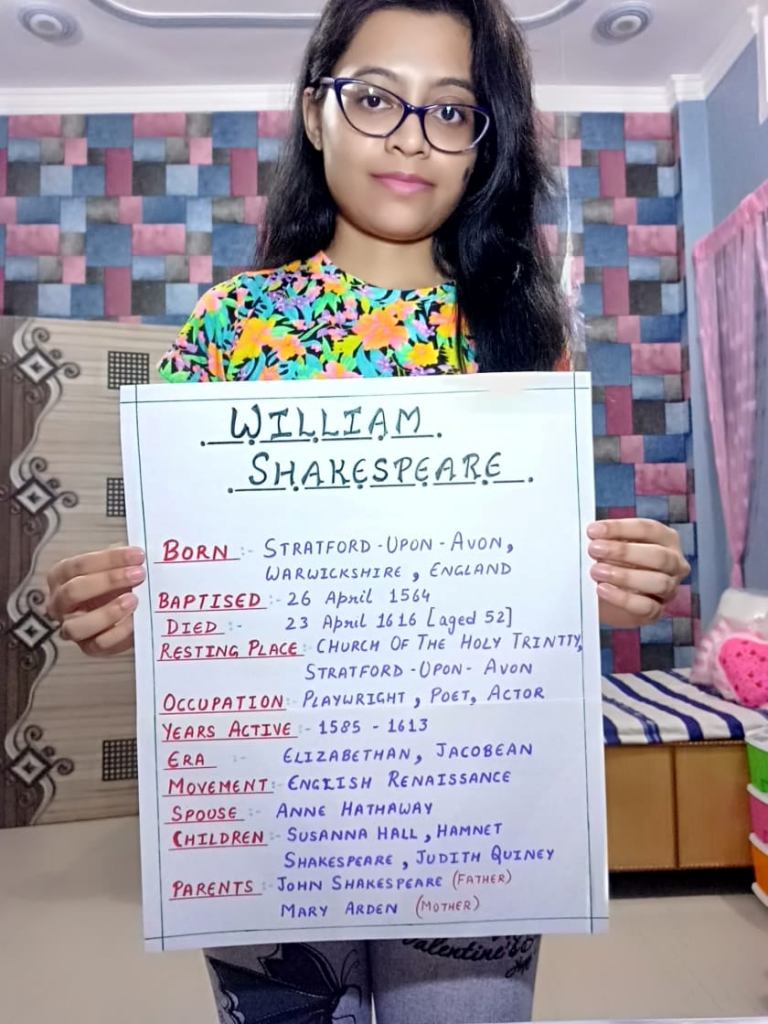 WILLIAM
SHAKESPEARE
BORN :- STRATFORD-UPON-AVON,
WARWICKSHIRE, ENGLAND
BAPTISED :- 26 April 1564
DIED :- 23 April 1616 [aged 52]
RESTING PLACE : CHURCH OF THE HOLY TRINITY,
STRATFORD-UPON-AVON
OCCUPATION :- PLAYWRIGHT, POET, ACTOR
YEARS ACTIVE :- 1585 - 1613
ERA :- ELIZABETHAN, JACOBEAN
MOVEMENT :- ENGLISH RENAISSANCE
SPOUSE :- ANNE HATHAWAY
CHILDREN :- SUSANNA HALL, HAMNET
SHAKESPEARE, JUDITH QUINEY
PARENTS :- JOHN SHAKESPEARE (FATHER)
MARY ARDEN (MOTHER)
Valentine's